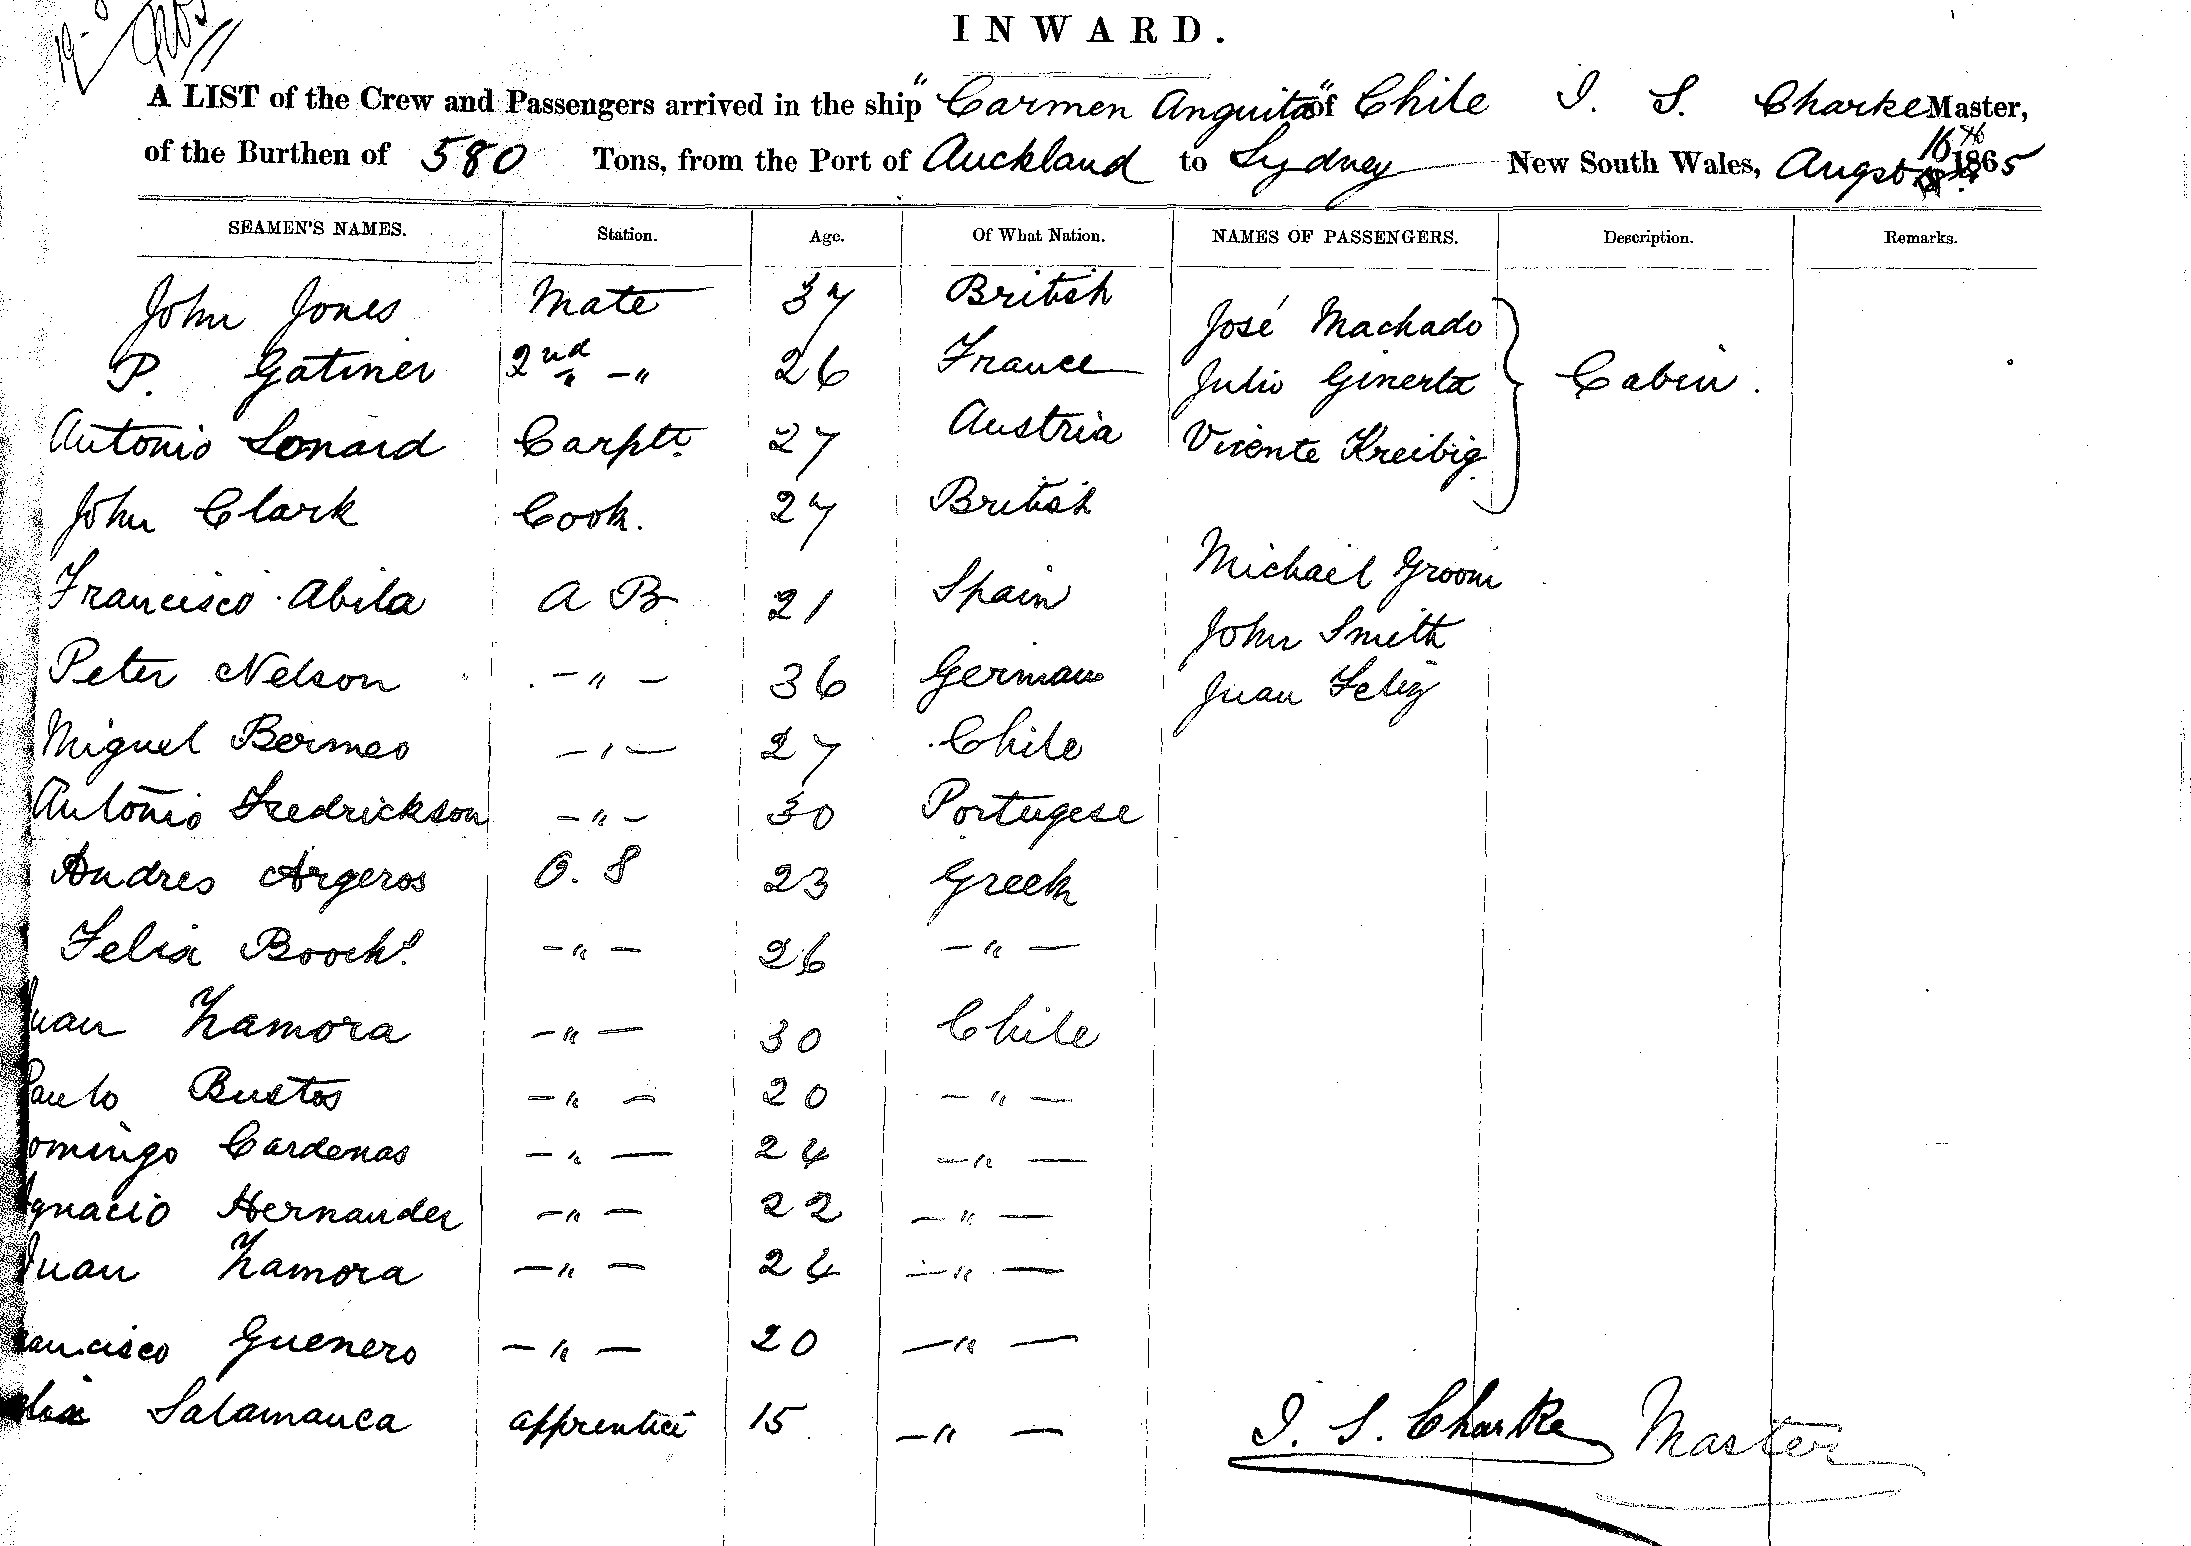 INWARD.
A LIST of the Crew and Passengers arrived in the ship "Carmen Anguita" of Chile I. S. Charke Master,
of the Burthen of 580 Tons, from the Port of Auckland to Sydney New South Wales, Augst 16th 1865
SEAMEN'S NAMES. Station. Age. Of What Nation. NAMES OF PASSENGERS. Description. Remarks.
John Jones Mate 37 British José Machado
P. Gatiner 2nd " -" 26 France Julio Ginerta Cabin.
Antonio Lonard Carptr 27 Austria Vicente Kreibig.
John Clark Cook. 27 British
Francisco Abila A B 21 Spain Michail Groom
Peter Nelson - " - 36 German John Smith
Juan Feliz
Miguel Bermeo - " - 27 Chile
Antonio Fredrickson - " - 30 Portugese
Andres Argeros O. S 23 Greek
Felix - " - 26 - " -
Juan Zamora - " - 30 Chile
Paulo Bustos - " - 20 - " -
omingo Cardenas - " - 24 - " -
Ignacio Hernander - " - 22 - " -
Juan Zamora - " - 24 - " -
ancisco Guenero - " - 20 - " -
Salamanca apprentice 15 - " -
I. S. Charke Master